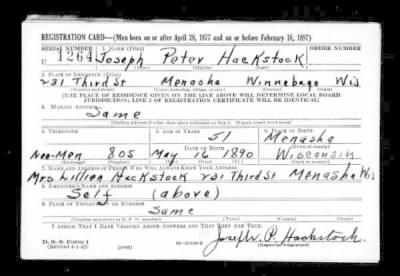 REGISTRATION CARD—(Men born on or after April 28, 1877 and on or before February 16, 1897)
SERIAL NUMBER 1. NAME (Print) ORDER NUMBER
U 1264 Joseph Peter Hackstock
(First) (Middle) (Last)
2. PLACE OF RESIDENCE (Print)
231 Third St Menasha Winnebago Wis
(Number and street) (Town, township, village, or city) (County) (State)
[THE PLACE OF RESIDENCE GIVEN ON THE LINE ABOVE WILL DETERMINE LOCAL BOARD
JURISDICTION; LINE 2 OF REGISTRATION CERTIFICATE WILL BE IDENTICAL]
3. MAILING ADDRESS
Same
[Mailing address if other than place indicated on line 2. If same insert word same]
4. TELEPHONE 5. AGE IN YEARS 6. PLACE OF BIRTH
51 Menasha
DATE OF BIRTH (Town or county)
Nee-Men 805 May 16 1890 Wisconsin
(Exchange) (Number) (Mo.) (Day) (Yr.) (State or country)
7. NAME AND ADDRESS OF PERSON WHO WILL ALWAYS KNOW YOUR ADDRESS
Mrs Lillian Hackstock 231 Third St Menasha Wis
8. EMPLOYER'S NAME AND ADDRESS
Self (above)
9. PLACE OF EMPLOYMENT OR BUSINESS
Same
(Number and street or R. F. D. number) (Town) (County) (State)
I AFFIRM THAT I HAVE VERIFIED ABOVE ANSWERS AND THAT THEY ARE TRUE.
D. S. S. Form 1
(Revised 4-1-42) (over)
Joseph P. Hackstock
(Registrant's signature)